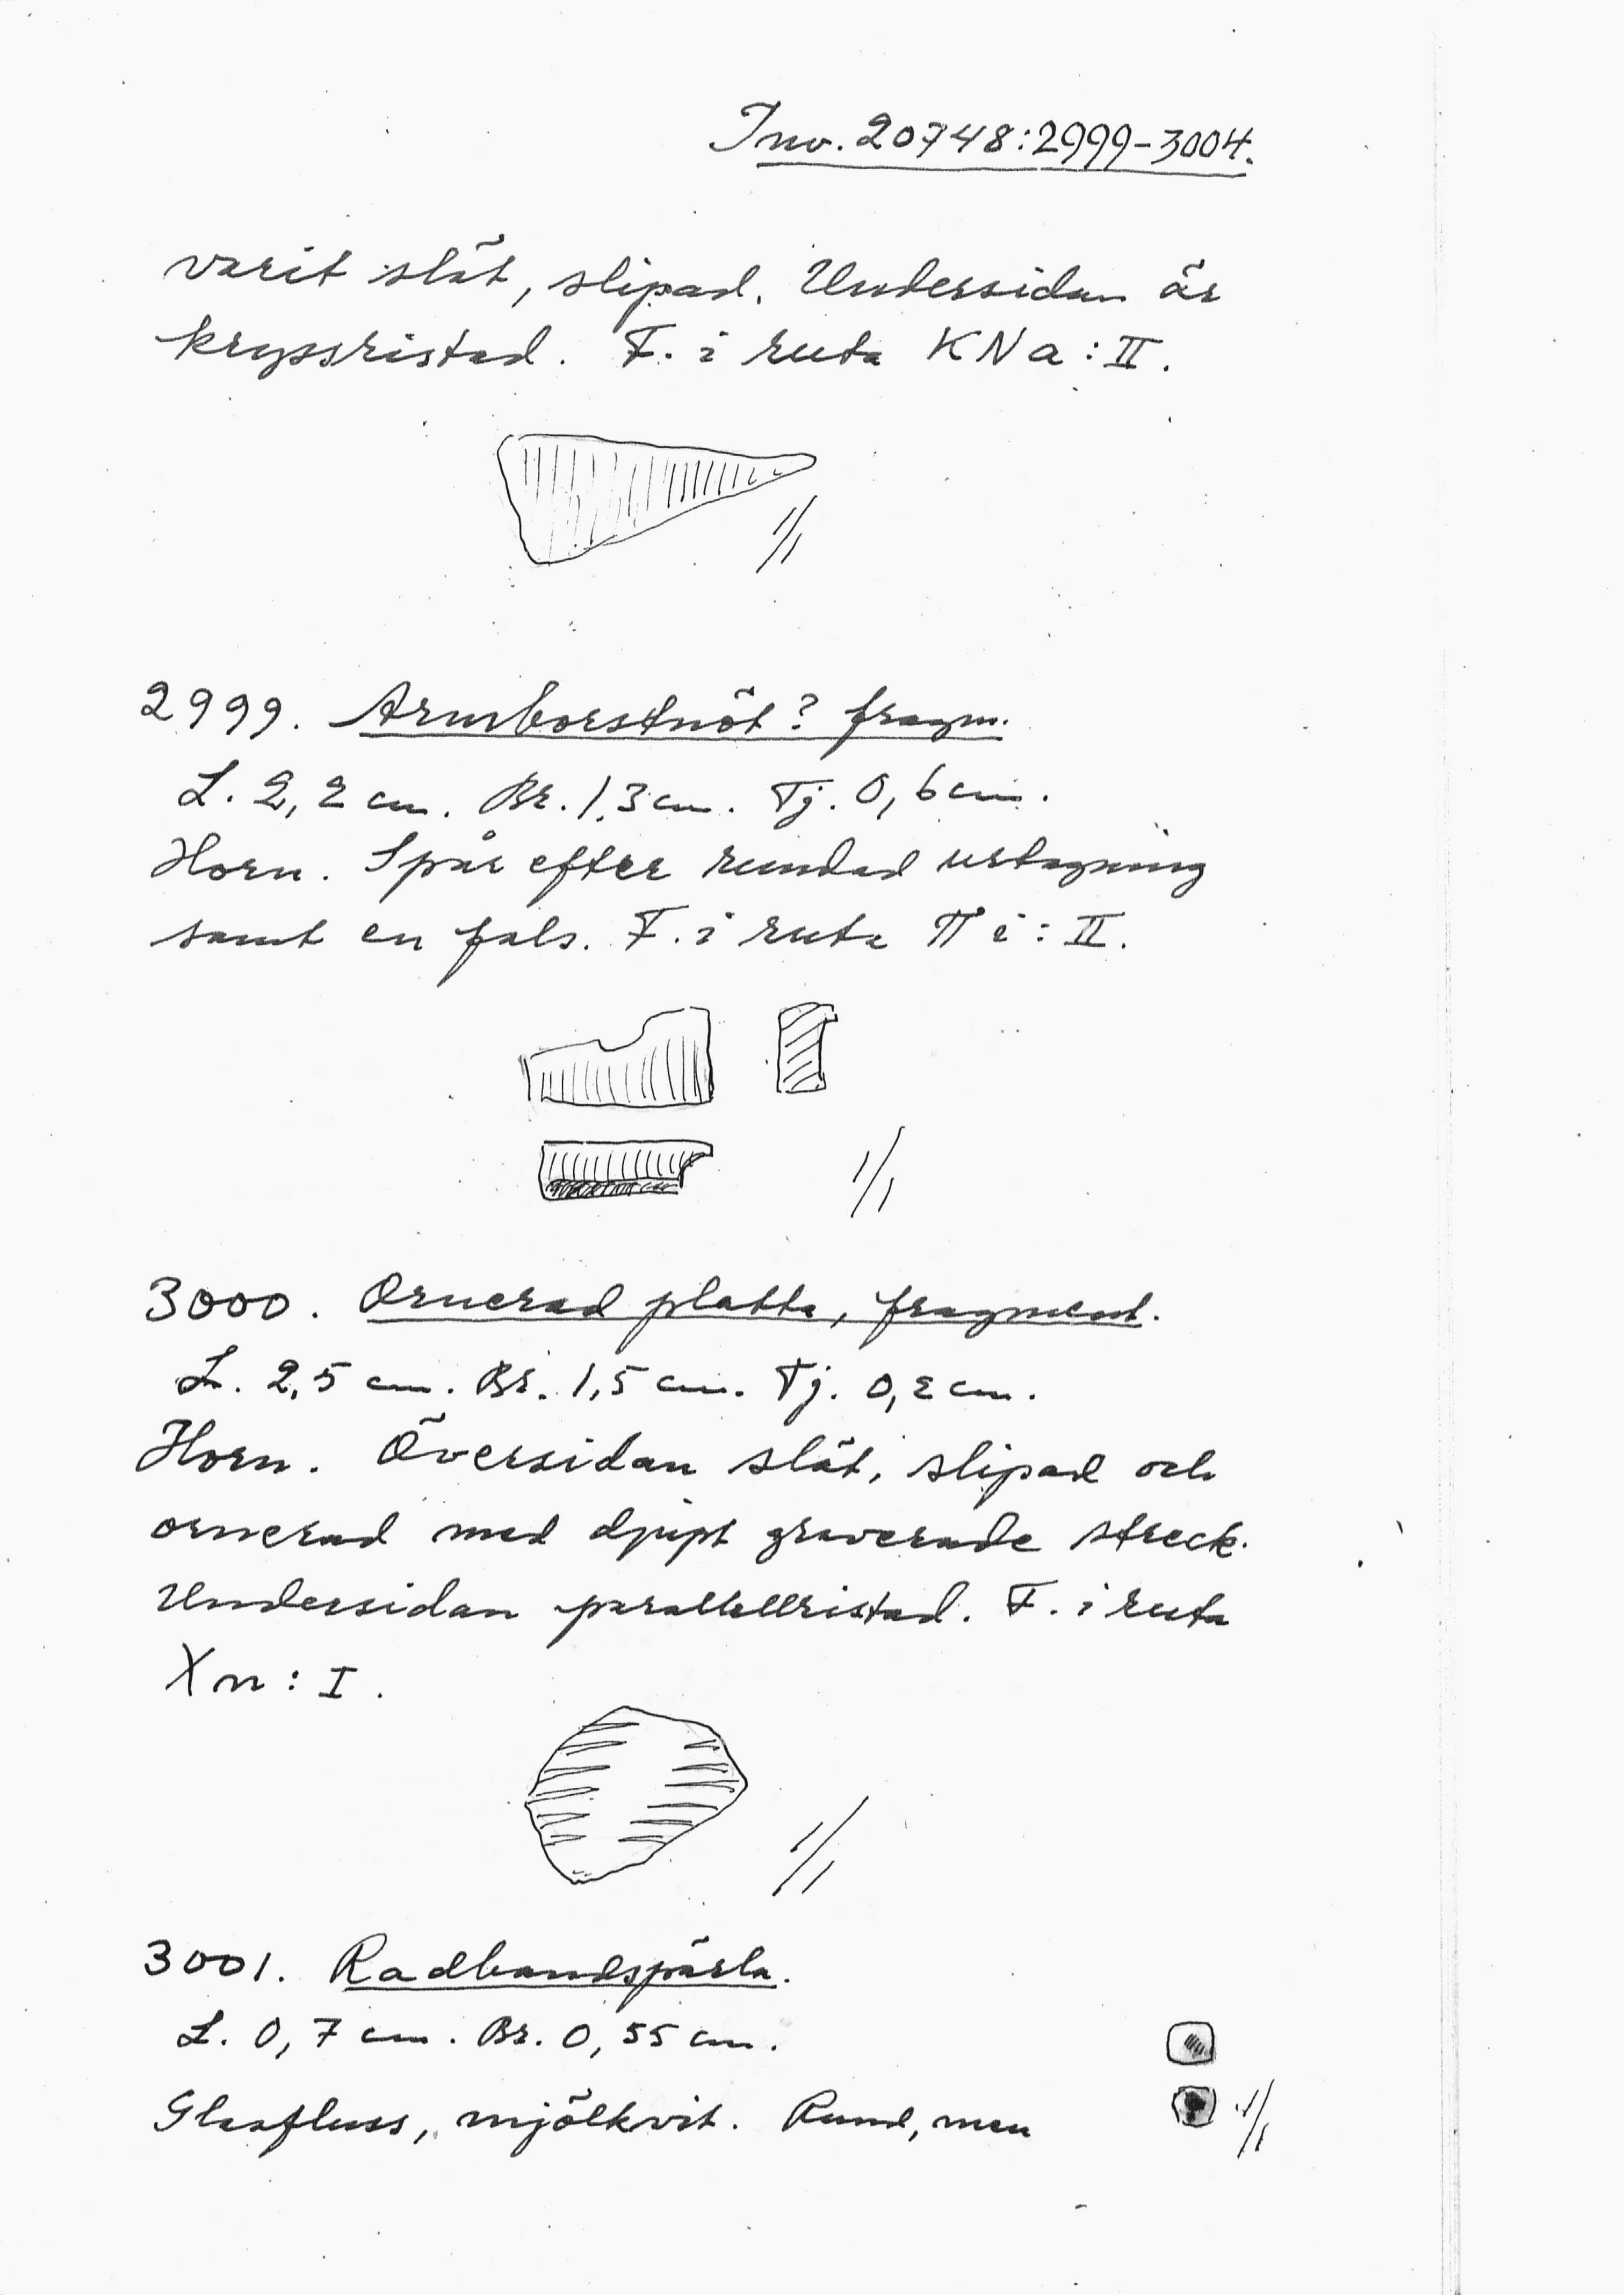 Inv. 20748:2999-3004.
varit slät, slipad. Undersidan är
kryssristad. F. i ruta KNa:II.
1/1
2999. Armborstnöt? fragm.
L. 2,2 cm. Br. 1,3 cm. Tj. 0,6 cm.
Horn. Spår efter rundad urtagning
samt en fals. F. i ruta π i:II.
1/1
3000. Ornerad platta, fragment.
L. 2,5 cm. Br. 1,5 cm. Tj. 0,2 cm.
Horn. Översidan slät, slipad och
ornerad med djupt graverade streck.
Undersidan parallellristad. F. i ruta
Xn:I.
1/1
3001. Radbandspärla.
L. 0,7 cm. Br. 0,55 cm.
Glasfluss, mjölkvit. Rund, men
1/1